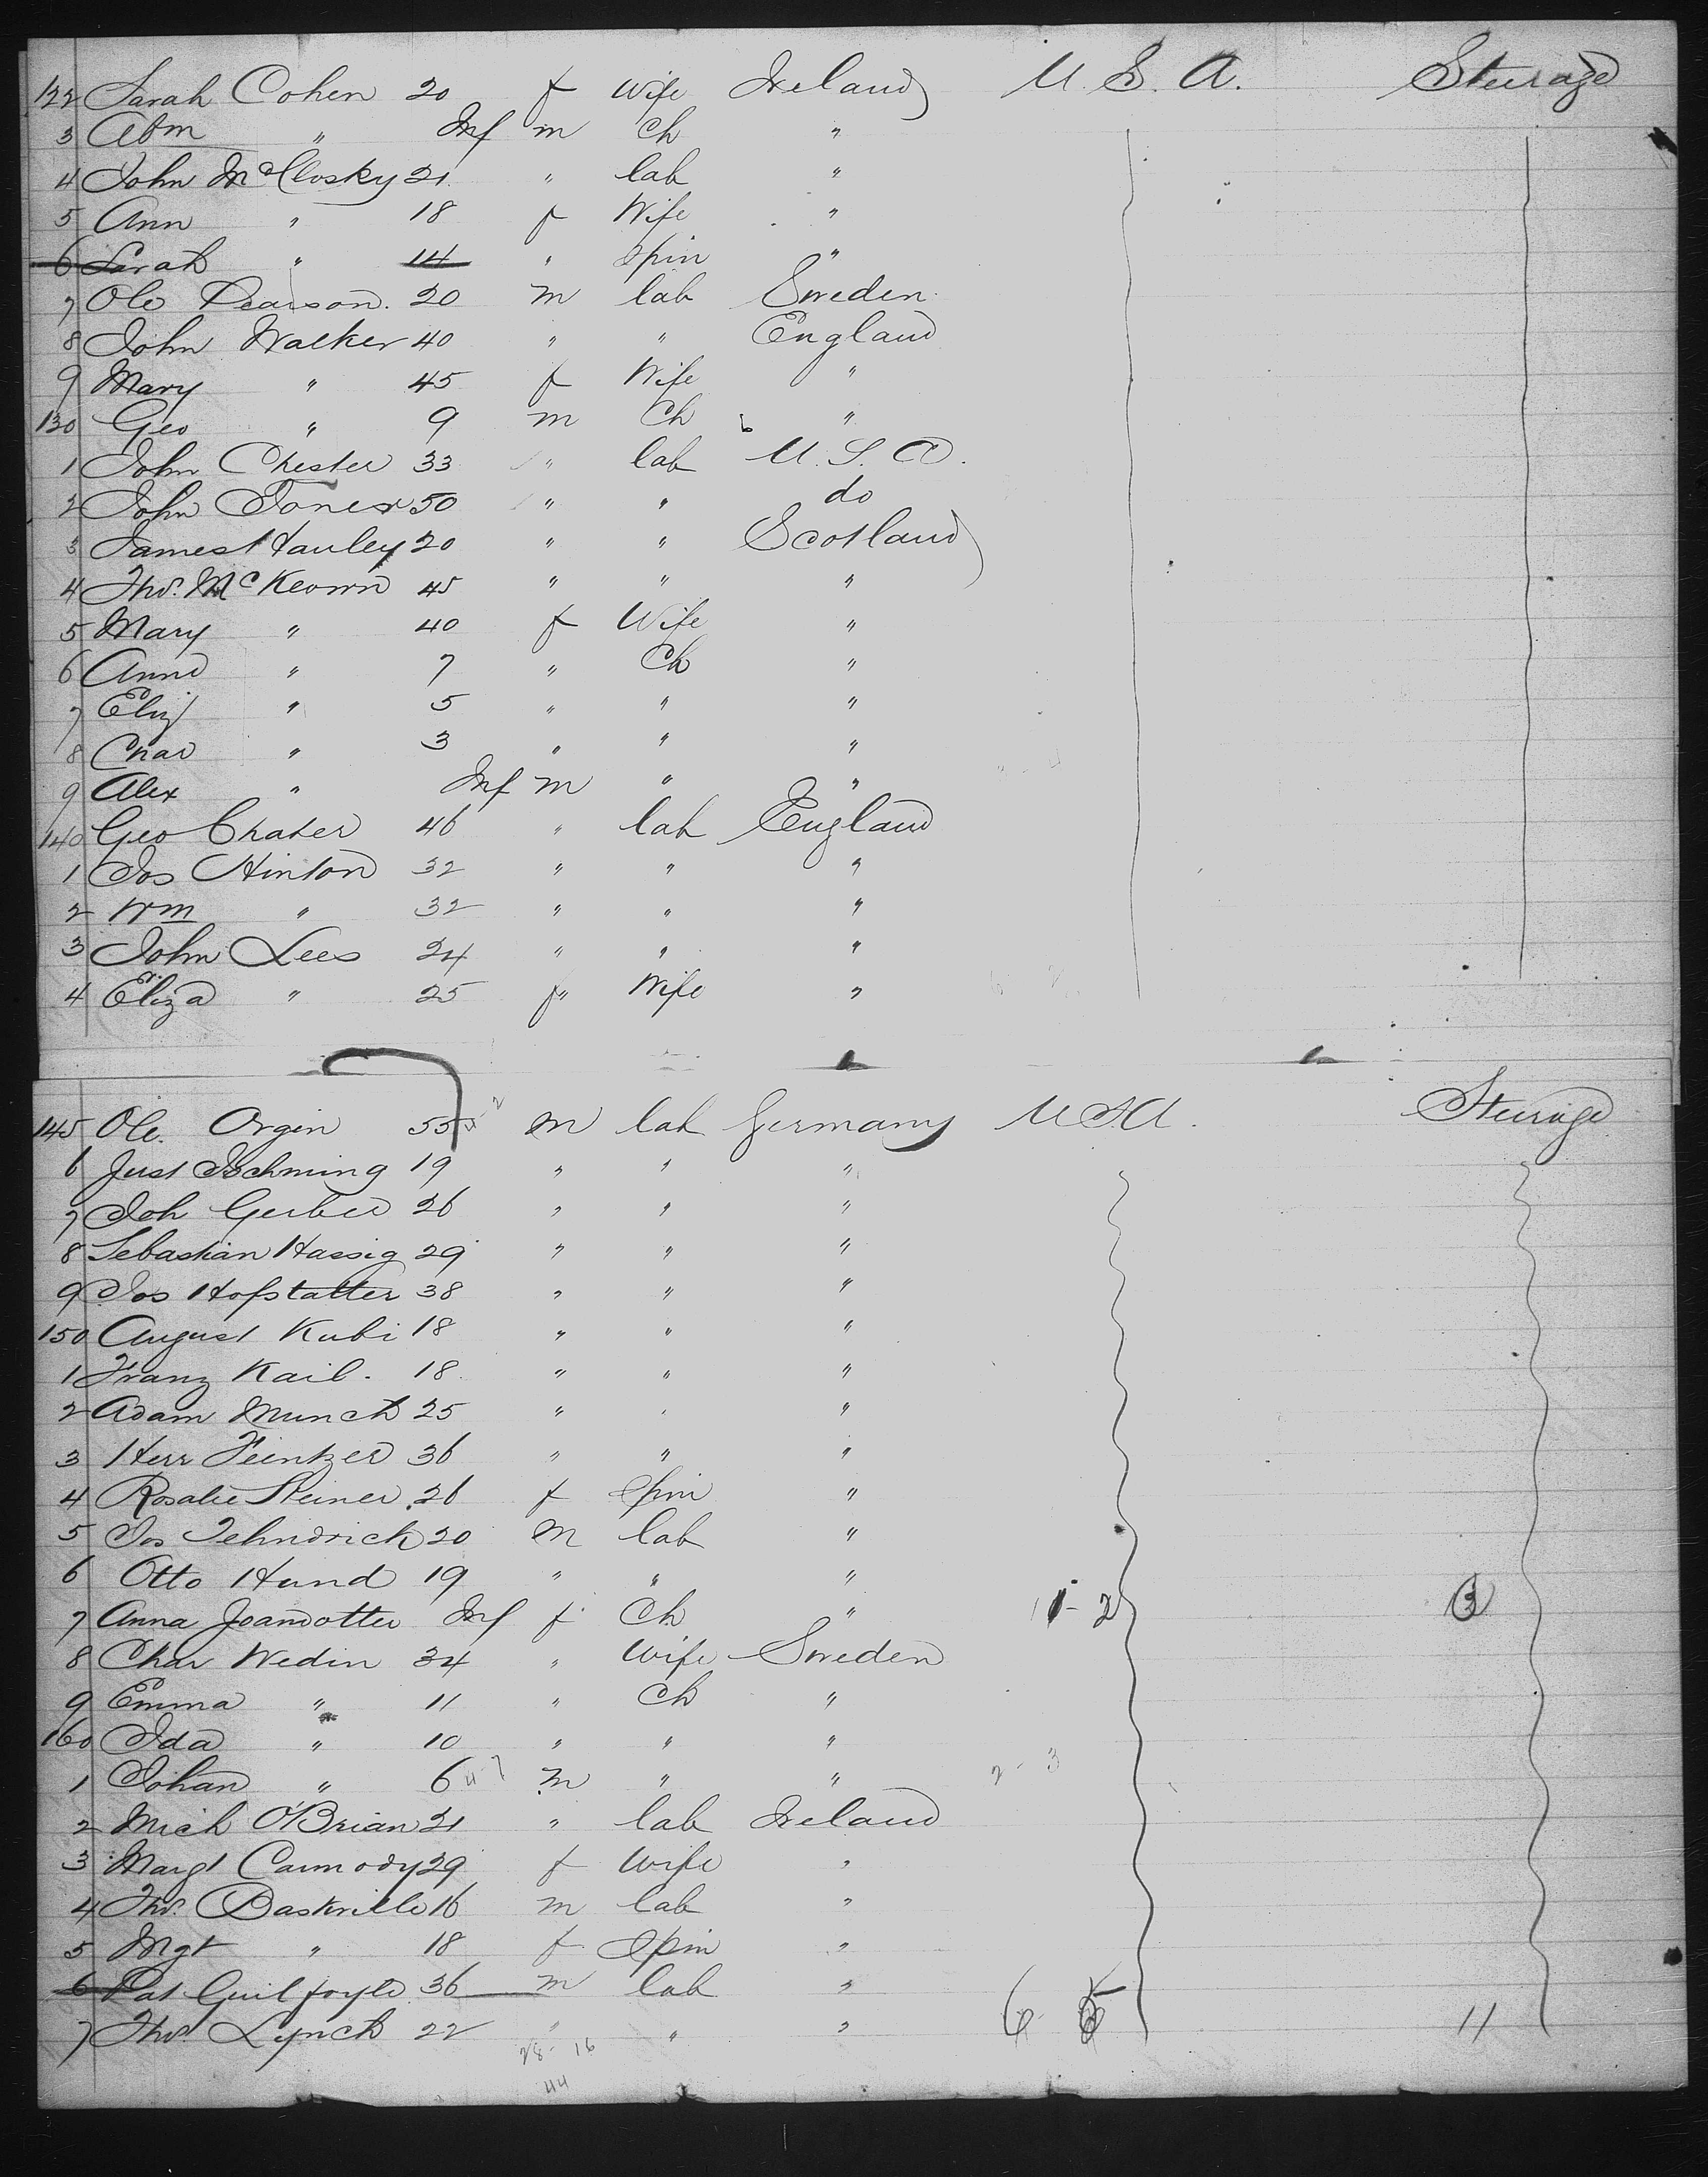 122 Sarah Cohen 20 f Wife Ireland U. S. A. Steerage
3 Abm " Inf m Ch "
4 John McClosky 21 " lab "
5 Ann " 18 f Wife "
6 Sarah " 14 " Spin "
7 Ole Pearson. 20 m lab Sweden
8 John Walker 40 " " England
9 Mary " 45 f Wife "
130 Geo " 9 m Ch "
1 John Chester 33 " lab U. S. A.
2 John Jones 50 " " do
3 James Hauley 20 " " Scotland
4 Thos. McKeown 45 " " "
5 Mary " 40 f Wife "
6 Anne " 7 " Ch "
7 Eliz " 5 " " "
8 Char " 3 " " "
9 Alex " Inf m " "
140 Geo Chater 46 " lab England
1 Jos Hinton 32 " " "
2 Wm " 32 " " "
3 John Lees 24 " " "
4 Eliza " 25 f Wife "
145 Ole. Orgin 55 m lab Germany U S A. Steerage
6 Just 19 " " "
7 Joh Gerber 26 " " "
8 Sebastian Hassig 29 " " "
9 Jos Hofstatter 38 " " "
150 August Kubi 18 " " "
1 Franz Kail. 18 " " "
2 Adam Munch 25 " " "
3 Herr 36 " " "
4 Rosalie Steiner 26 f Spin "
5 Jos 20 m lab "
6 Otto Hund 19 " " "
7 Anna Joandotter Inf f Ch " 1-2 3
8 Char Wedin 34 " Wife Sweden
9 Emma " 11 " Ch "
160 Ida " 10 " " "
1 Johan " 6 m " " 2-3
2 Mich O'Brian 21 " lab Ireland
3 Margt Carmody 29 f Wife "
4 Thos. Baskville 16 m lab "
5 Mgt " 18 f Spin "
6 Pat Guilfoyle 36 m lab "
7 Thos. Lynch 22 " " " 6- 5 11
28- 16
44